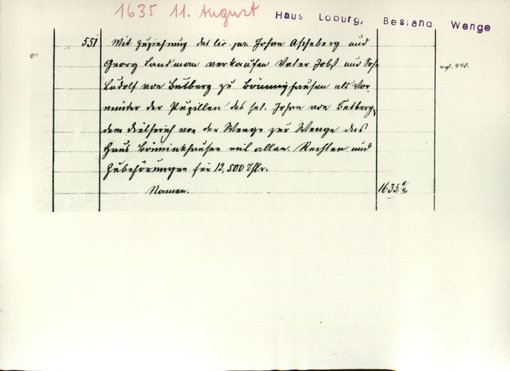 1635 11. August
Haus Loburg, Bestand Wenge
551 Mit Zuziehung des lic. jur. Johan Asseberg und
Georg Landman verkaufen Vater Jobst und Sohn
Ludolf von Butberg zu Bönninghausen als Vor-
münder der Pupillen des sel. Johan von Butberg,
dem Dietherich von der Wenge zur Wenge das
Haus Bönninkhausen mit allen Rechten und
Zubehörungen für 12,500 Thlr.
vgl. 440.
Namen.
1635, 11/8.